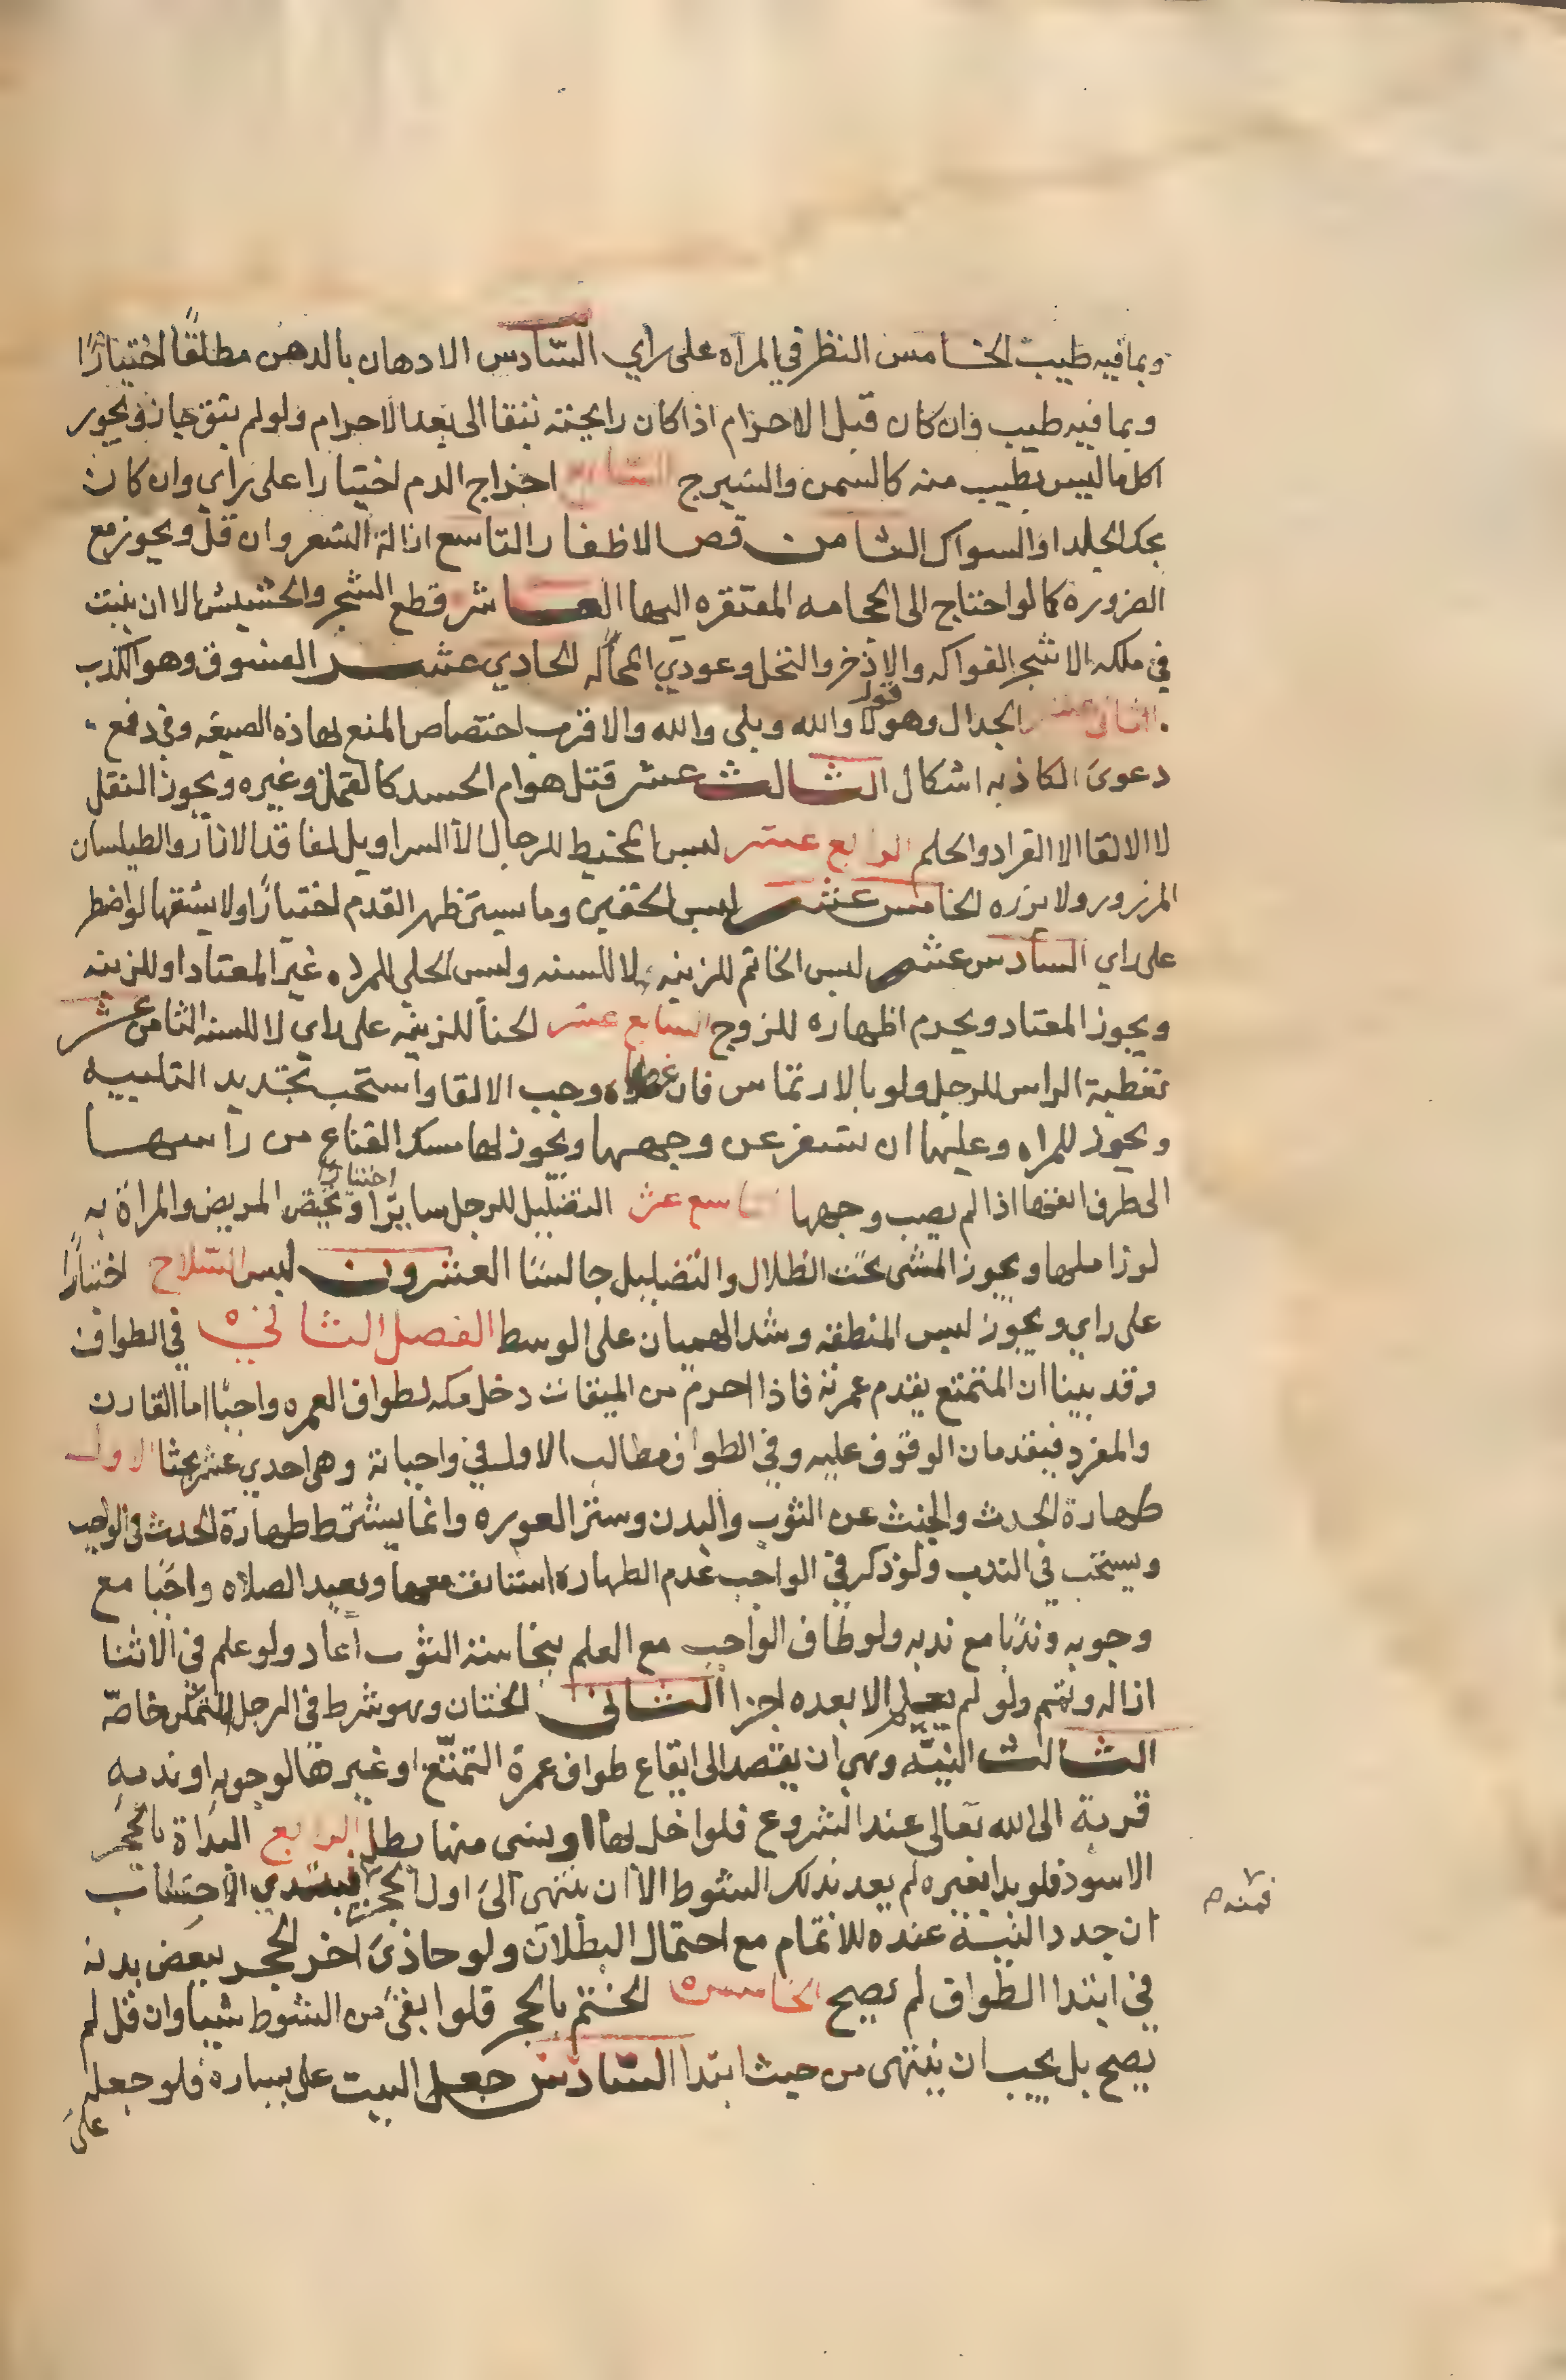 وبما فيه طيب الخامس النظر في المراه على راي السادس الادهان بالدهن مطلقا اختيارا
وبما فيه طيب وان كان قبل الاحرام اذا كان رايحته تبقا الى بعد الاحرام ولو لم يبق جاز ويجوز
اكل ما ليس بطيب منه كالسمن والشيرج السابع اخراج الدم اختيارا على راي وان كان
بحك الجلد او السواك الثامن قص الاظفار التاسع ازالة الشعر وان قل ويجوز مع
الضروره كما لو احتاج الى الحجامه المفتقره اليها العاشر قطع الشجر والحشيش الا ان ينبت
في ملكه الا شجر الفواكه والاذخر والنخل وعودي المحاله الحادي عشر الفسوق وهو الكذب
الثاني عشر الجدال وهو قول لا والله وبلى والله والاقرب اختصاص المنع بهاذه الصيغه وفي دفع
دعوى الكاذبه اشكال الثالث عشر قتل هوام الجسد كالقمل وغيره ويجوز النقل
لا الالقا الا القراد والحلم الرابع عشر لبس المخيط للرجال الا السراويل لفاقد الازار والطيلسان
المزرور ولا يزره الخامس عشر لبس الخفين وما يستر ظهر القدم اختيارا ولا يشقها لو اضطر
على راي السادس عشر لبس الخاتم للزينه لا للسنه ولبس الحلي للمراه غير المعتاد او للزينه
ويجوز المعتاد ويحرم اظهاره للزوج السابع عشر الحنا للزينه على راي لا للسنه الثامن عشر
تغطية الراس للرجل ولو بالارتماس فان غطاه وجب الالقا واستحب تجديد التلبيه
ويجوز للمراه وعليها ان تسفر عن وجهها ويجوز لها سدل القناع من راسها
الى طرف انفها اذا لم يصب وجهها التاسع عشر التضليل للرجل سايرا اختيارا ويختص المريض والمراة به
لو زاملها ويجوز المشي تحت الظلال والتضليل جالسا العشرون لبس السلاح اختيارا
على راي ويجوز لبس المنطقه وشد الهميان على الوسط الفصل الثاني في الطواف
وقد بينا ان المتمتع يقدم عمرته فاذا احرم من الميقات دخل مكه لطواف العمره واجبا اما القارن
والمفرد فيقدمان الوقوف عليه وفي الطواف مطالب الاول في واجباته وهي احدي عشر بحثا الاول
طهارة الحدث والخبث عن الثوب والبدن وستر العوره وانما يشترط طهارة الحدث في الواجب
ويستحب في الندب ولو ذكر في الواجب عدم الطهاره استانف معها ويعيد الصلاه واجبا مع
وجوبه وندبا مع ندبه ولو طاف الواجب مع العلم بنجاسة الثوب اعاد ولو علم في الاثنا
ازاله وتمم ولو لم يعلم الا بعده اجزا الثاني الختان وهو شرط في الرجل المتمكن خاصة
الثالث النية وهي ان يقصد الى ايقاع طواف عمرة التمتع او غيرها لوجوبه او ندبه
قربة الى الله تعالى عند الشروع فلو اخل بها او بشي منها بطل الرابع البداة بالحجر
الاسود فلو بدا بغيره لم يعد بذلك الشوط الا ان ينتهى الى اول الحجر فيبتدي الاحتساب
فمنه
ان جدد النية عنده للاتمام مع احتمال البطلان ولو حاذى اخر الحجر ببعض بدنه
في ابتدا الطواف لم يصح الخامس الختم بالحجر فلو ابقى من الشوط شيا وان قل لم
يصح بل يجب ان ينتهى من حيث ابتدا السادس جعل البيت على يساره فلو جعله
على